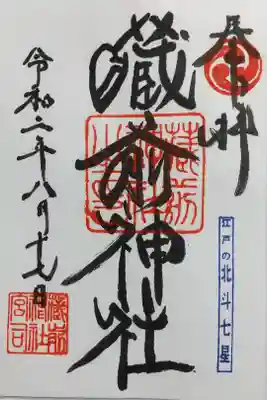 奉拝
江戸の北斗七星
藏前神社
令和二年八月十七日
藏前神社宮司